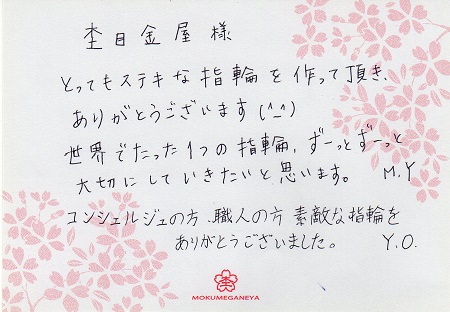 杢目金屋 様
とってもステキな指輪を作って頂き、
ありがとうございます(^-^)
世界でたった1つの指輪、ずーっとずーっと
大切にしていきたいと思います。 M.Y
コンシェルジュの方、職人の方 素敵な指輪を
ありがとうございました。 Y.O.
MOKUMEGANEYA